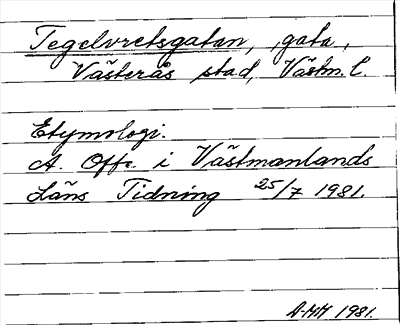 Tegelvretsgatan, gata,
Västerås stad, Västm. l.
Etymologi.
A. Offr. i Västmanlands
Läns Tidning 25/7 1981.
A-MH 1981.